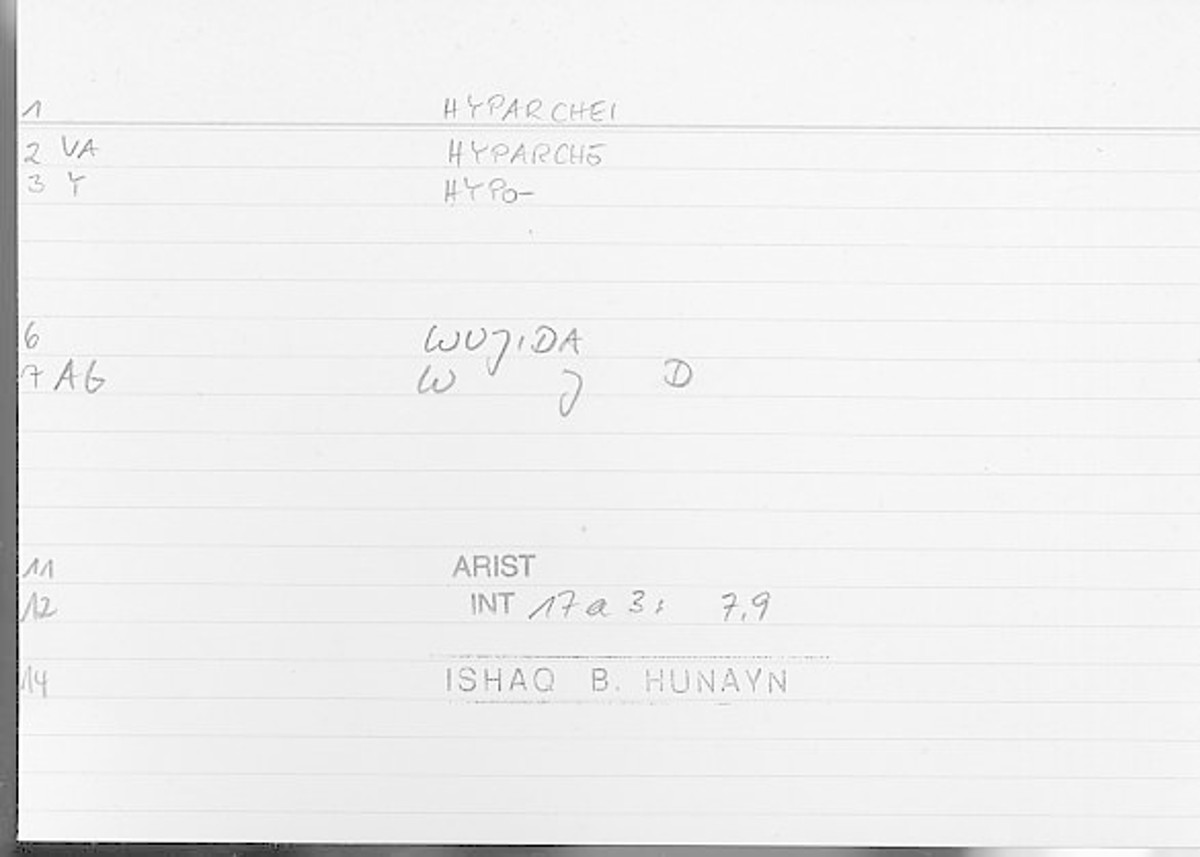 1 HYPARCHEI
2 VA HYPARCHŌ
3 Y HYPO-
6 WUJIDA
7 AG W J D
11 ARIST
12 INT 17a 3; 7,9
14 ISHAQ B. HUNAYN